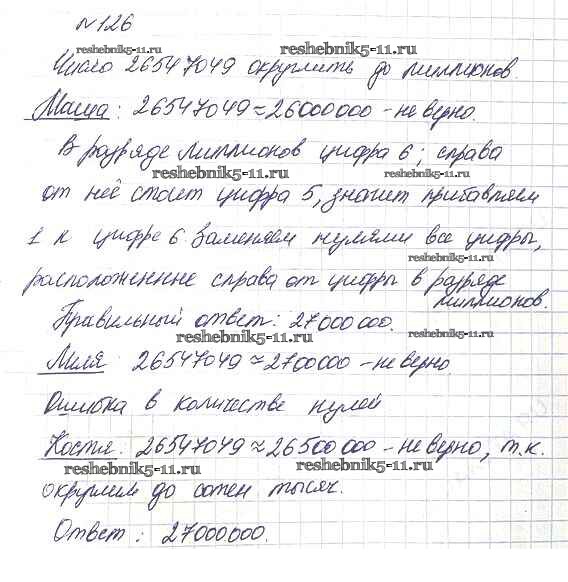 №126
reshebnik5-11.ru
reshebnik5-11.ru
Число 26547049 округлить до миллионов.
Маша: 26547049≈26000000 - не верно.
В разряде миллионов цифра 6; справа
reshebnik5-11.ru
reshebnik5-11.ru
от неё стоит цифра 5, значит прибавляем
1 к цифре 6 Заменяем нулями все цифры,
reshebnik5-11.ru
расположенные справа от цифры в разряде
миллионов.
Правильный ответ: 27000000.
reshebnik5-11.ru
reshebnik5-11.ru
Миля: 26547049≈2700000 - не верно.
Ошибка в количестве нулей
Костя: 26547049≈26500000 - не верно, т.к.
reshebnik5-11.ru
reshebnik5-11.ru
округлил до сотен тысяч.
Ответ: 27000000.
reshebnik5-11.ru